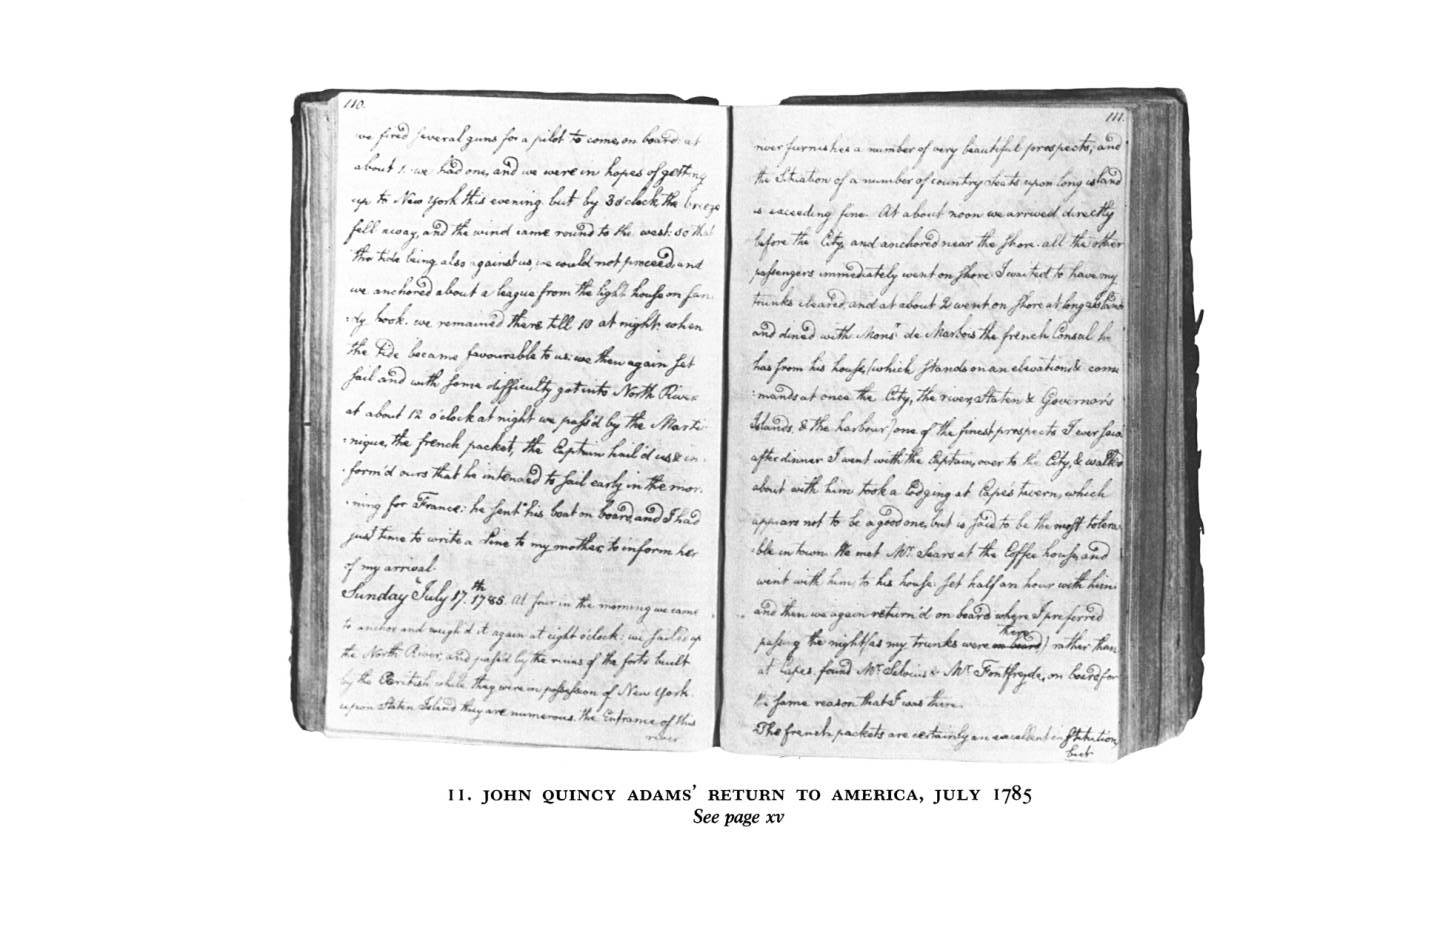 110.
we fired several guns for a pilot to come on board: at
about 1. we had one, and we were in hopes of getting
up to New York this evening. but by 3 o'clock the breeze
fell away, and the wind came round to the west: so that
the tide being also against us, we could not proceed and
we anchored about a league from the light house on San-
:dy hook. we remained there till 10 at night: when
the tide became favourable to us: we then again set
sail and with some difficulty got into North River
at about 12 o'clock at night we pass'd by the Marti-
:nique, the french packet, the Captain hail'd us & in-
:form'd ours that he intended to sail early in the mor-
:ning for France: he sent his boat on board, and I had
just time to write a line to my mother, to inform her
of my arrival.
Sunday July 17.th 1785. At four in the morning we came
to anchor and weigh'd it again at eight o'clock: we sailed up
the North River, and pass'd by the ruins of the forts built
by the British while they were in possession of New York.
upon Staten Island they are numerous. the Entrance of this
river
111.
river furnishes a number of very beautiful prospects, and
the Situation of a number of country Seats upon long island
is exceeding fine. At about noon we arrived directly
before the City, and anchored near the Shore. all the other
passengers immediately went on shore. I waited to have my
trunks cleared, and at about 2 went on shore at long island
and dined with Monsr. de Marbois the french Consul he
has from his house, (which stands on an elevation, & com-
:mands at once the City, the river, Staten & Governor's
Islands, & the harbour) one of the finest prospects I ever saw
after dinner I went with the Captain, over to the City, & walk'd
about with him took a lodging at Cape's tavern, which
appears not to be a good one, but is said to be the most tolera-
:ble in town. We met Mr. Sears at the Coffee house, and
went with him, to his house. set half an hour with him:
and then we again return'd on board where I preferred
passing the night (as my trunks were there on board) rather than
at Capes. found Mr. & Mr. Fontfreyde, on board for
the same reason that I was there.
The french packets are certainly an excellent institution,
but
11. JOHN QUINCY ADAMS' RETURN TO AMERICA, JULY 1785
See page xv